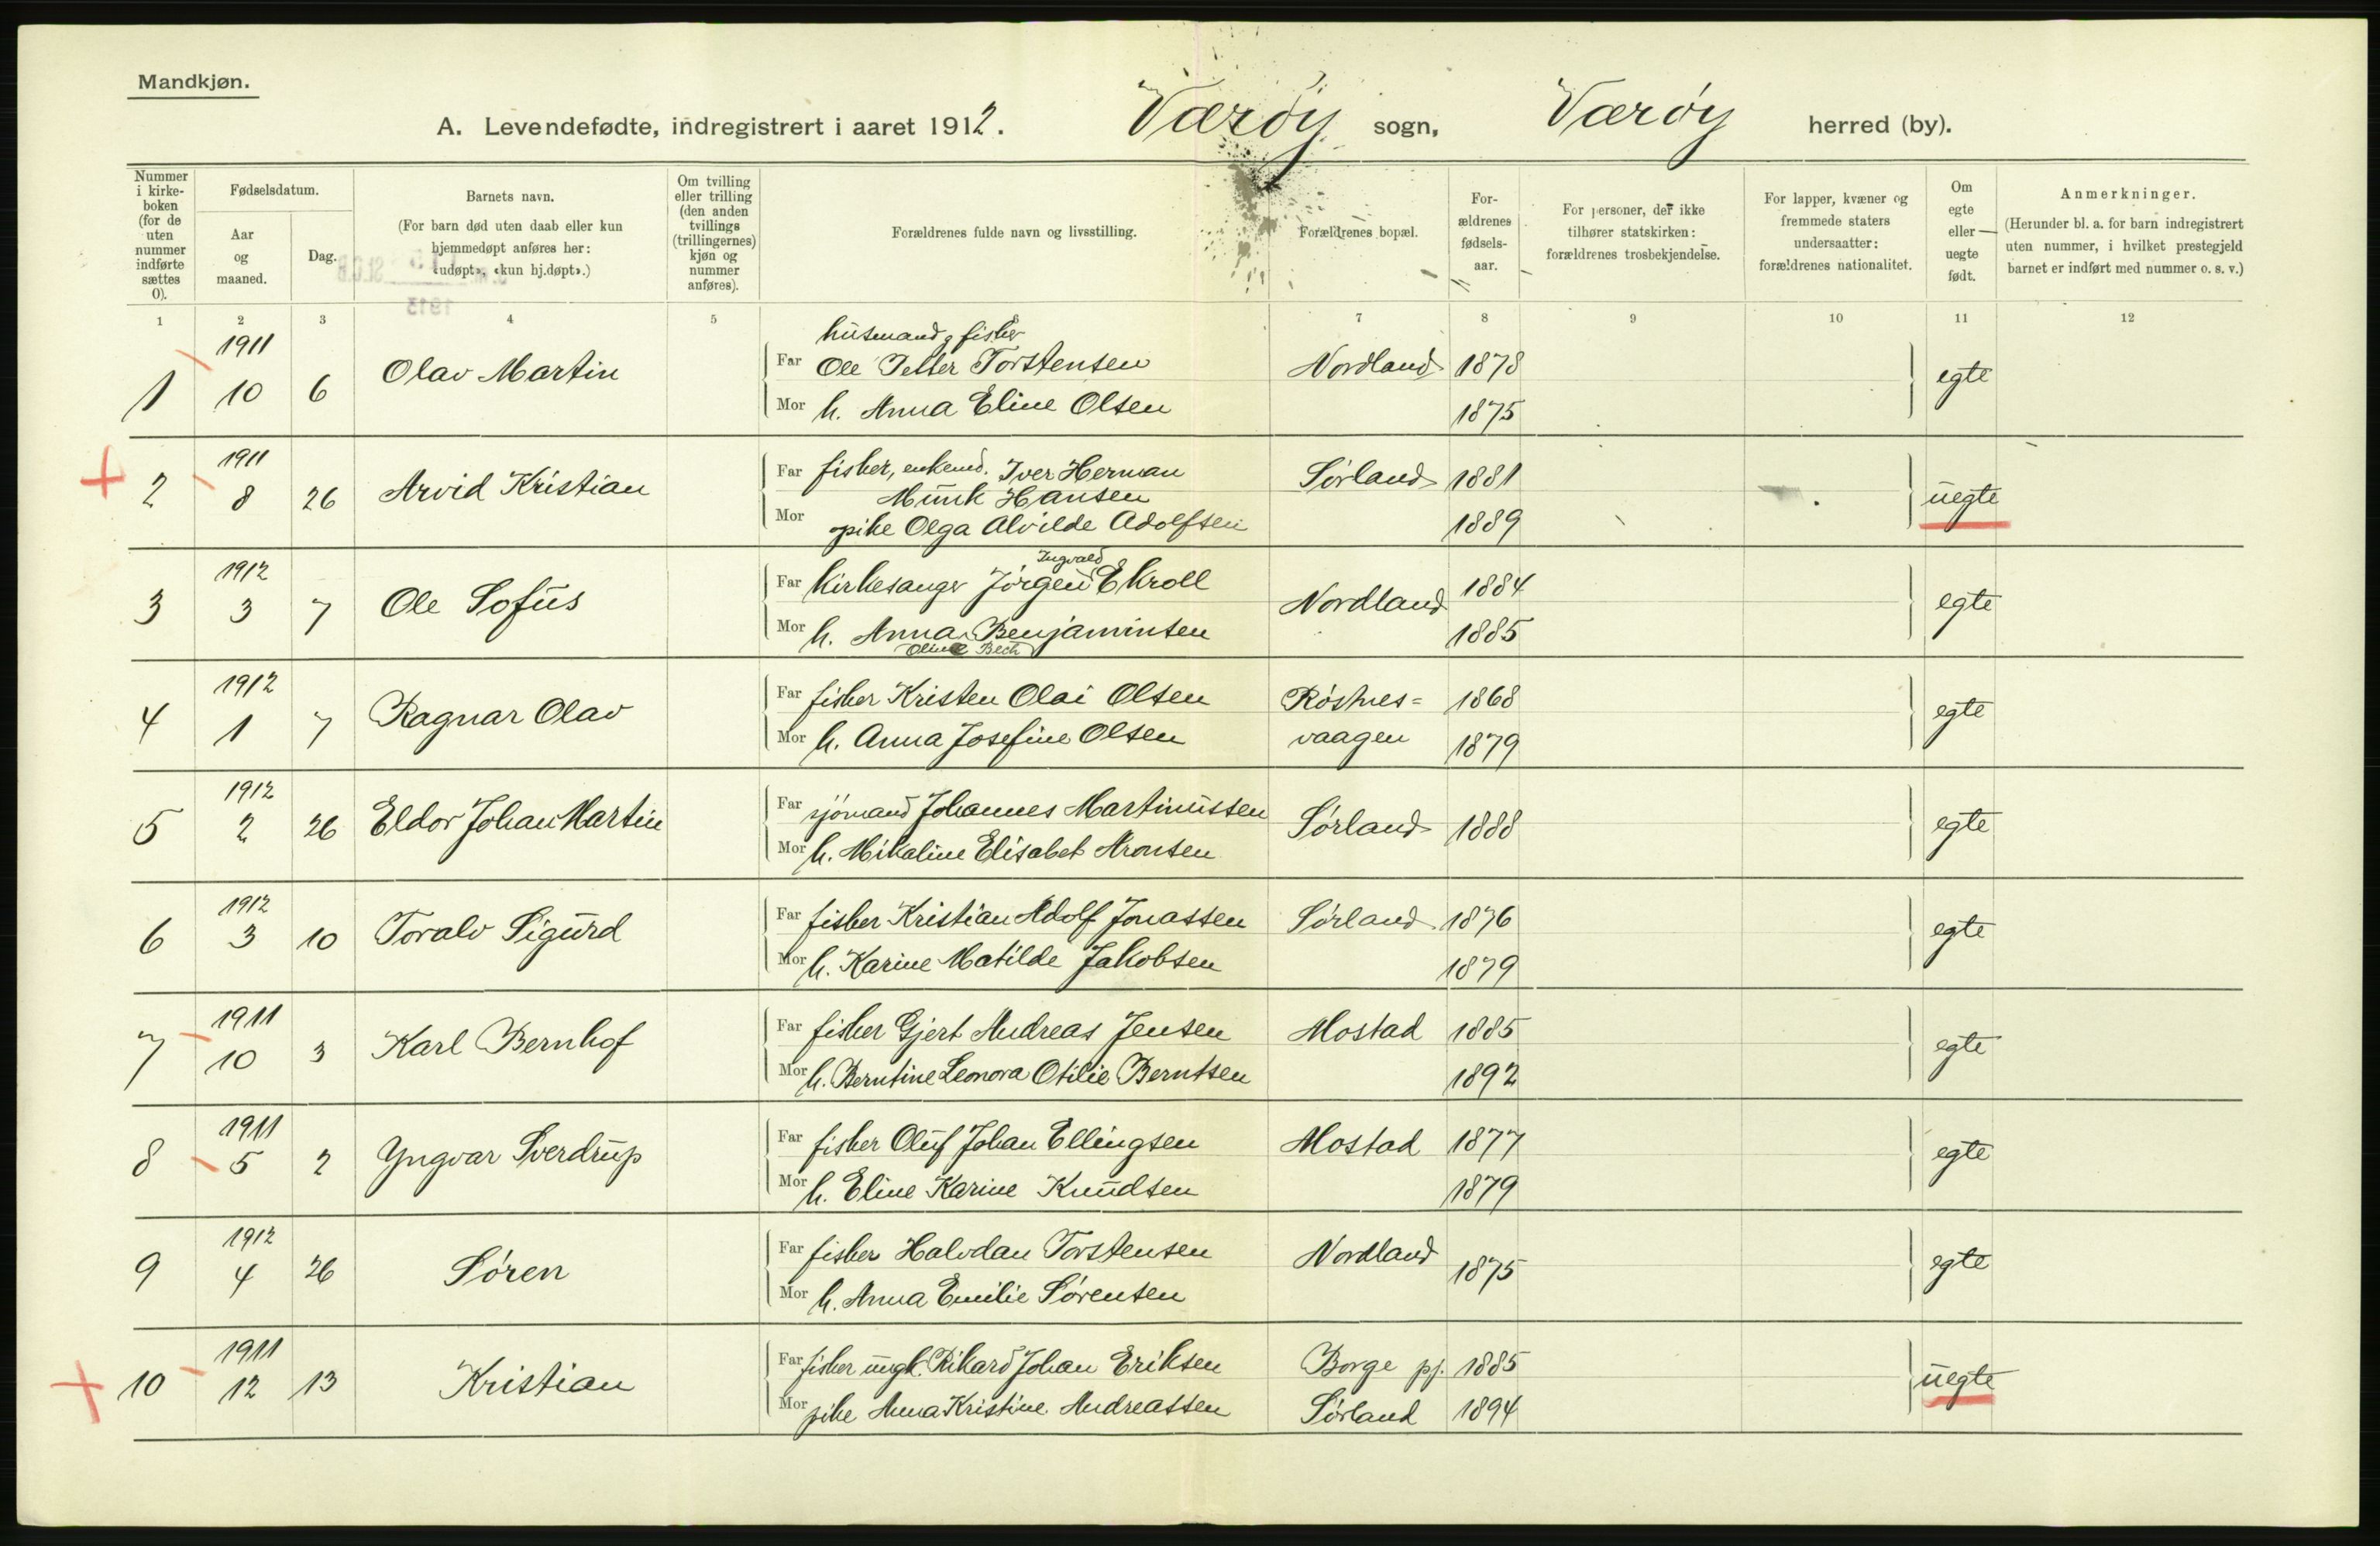 Mandkjøn.
A. Levendefødte, indregistrert i aaret 1912. Værøy sogn, Værøy herred (by).
Nummer i kirke-boken (for de uten nummer indførte sættes 0).
Fødselsdatum.
Aar og maaned.
Dag.
Barnets navn.
(For barn død uten daab eller kun hjemmedøpt anføres her: «udøpt», «kun hj.døpt».)
Om tvilling eller trilling (den anden tvillings (trillingernes) kjøn og nummer anføres).
Forældrenes fulde navn og livsstilling.
Forældrenes bopæl.
For-ældrenes fødsels-aar.
For personer, der ikke tilhører statskirken: forældrenes trosbekjendelse.
For lapper, kvæner og fremmede staters undersaatter: forældrenes nationalitet.
Om egte eller uegte født.
Anmerkninger.
(Herunder bl. a. for barn indregistrert uten nummer, i hvilket prestegjeld barnet er indført med nummer o. s. v.)
1913
1 2 3 4 5 7 8 9 10 11 12
1 1911 10 6 Olav Martin
husmand g fisker
Far Ole Petter Torstensen Nordland 1878 egte
Mor h. Anna Eline Olsen 1875
2 1911 8 26 Arvid Kristian
Far fisker, enkemd. Iver Herman Sørland 1881 uegte
Munk Hansen
Mor pike Olga Alvilde Adolfsen 1889
3 1912 3 7 Ole Sofus
Ingvald
Far kirkesanger Jørgen Ekroll Nordland 1884 egte
Mor h. Anna Benjaminsen 1885
Oline Bech
4 1912 1 7 Ragnar Olav
Far fisker Kristen Olai Olsen Røstnes= 1868 egte
Mor h. Anna Josefine Olsen vaagen 1879
5 1912 2 26 Eldor Johan Martin
Far sjømand Johannes Martinussen Sørland 1888 egte
Mor h. Mikaline Elisabet Aronsen
6 1912 3 10 Toralv Sigurd
Far fisker Kristian Adolf Jonassen Sørland 1876 egte
Mor h. Karine Matilde Jakobsen 1879
7 1911 10 3 Karl Bernhof
Far fisker Gjert Andreas Jensen Mostad 1885 egte
Mor h. Berntine Leonora Otilie Berntsen 1892
8 1911 5 2 Yngvar Sverdrup
Far fisker Oluf Johan Ellingsen Mostad 1877 egte
Mor h. Eline Karine Knudsen 1879
9 1912 4 26 Søren
Far fisker Halvdan Torstensen Nordland 1875 egte
Mor h. Anna Emilie Sørensen
10 1911 12 13 Kristian
Far fisker ungk. Rikard Johan Eriksen Borge pj. 1885 uegte
Mor pike Anna Kristine Andreassen Sørland 1894